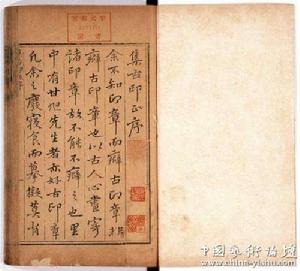 集古印正序
余不知印章而癖古印章
癖古印章也以古人心畫寄
諸印章故不能不癖之也里
中有甘旭先生者亦好古印章
凡余之廢寢食而摹擬其
中国艺术论坛
www.china-yishu.com